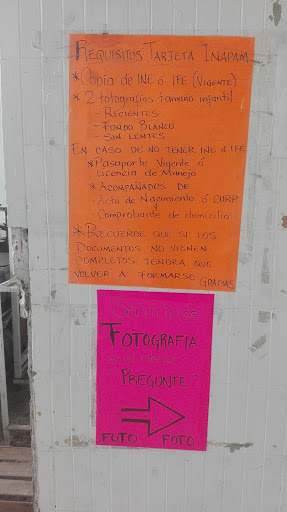 REQUISITOS TARJETA INAPAM
* Copia de INE ó IFE (VIGENTE)
* 2 fotografías tamaño infantil
- RECIENTES
- FONDO BLANCO
- SIN LENTES
EN CASO DE NO TENER INE ó IFE
* Pasaporte Vigente ó
Licencia de Manejo
* ACOMPAÑADOS DE
- Acta de Nacimiento ó CURP
y
Comprobante de domicilio
* RECUERDE QUE SI LOS
DOCUMENTOS NO VIENEN
COMPLETOS TENDRA QUE
VOLVER A FORMARSE
GRACIAS
Servicio de
FOTOGRAFIA
PREGUNTE
FOTO FOTO